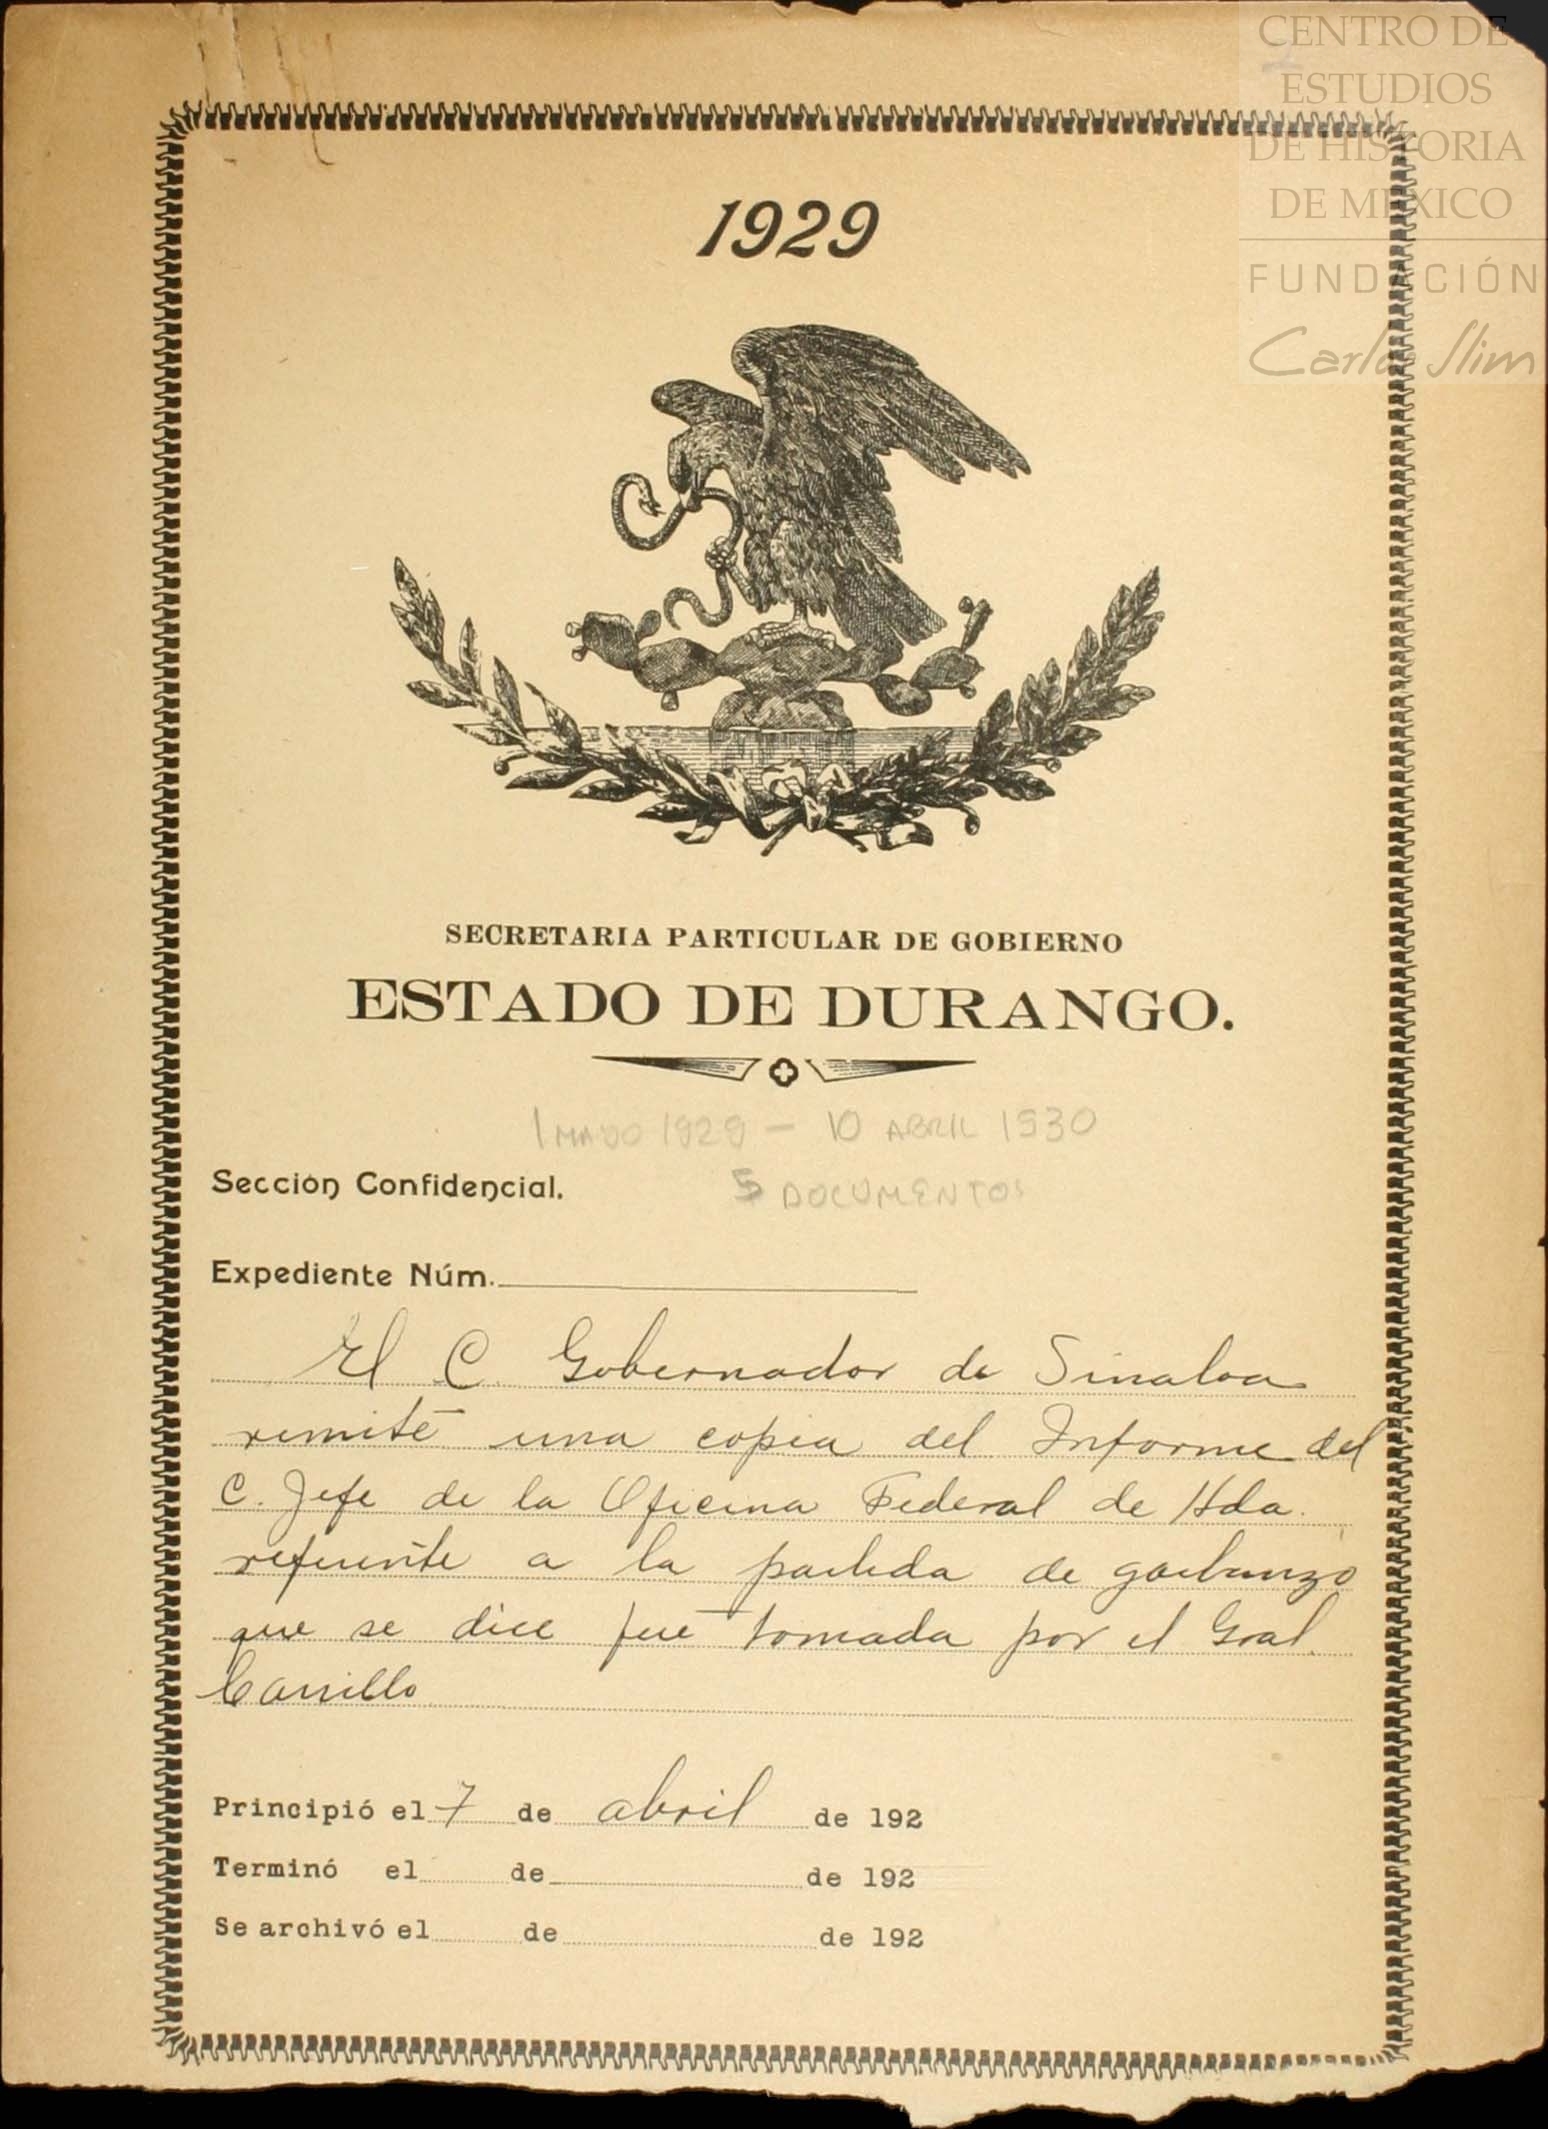 CENTRO DE
ESTUDIOS
DE HISTORIA
DE MÉXICO
FUNDACIÓN
Carlos Slim
1929
SECRETARIA PARTICULAR DE GOBIERNO
ESTADO DE DURANGO.
1 MAYO 1929 — 10 ABRIL 1930
Sección Confidencial.
5 DOCUMENTOS
Expediente Núm.
El C. Gobernador de Sinaloa
remite una copia del Informe del
C. Jefe de la Oficina Federal de Hda.
referente a la partida de garbanzo
que se dice fué tomada por el Gral.
Carrillo
Principió el 7 de abril de 192
Terminó el de de 192
Se archivó el de de 192